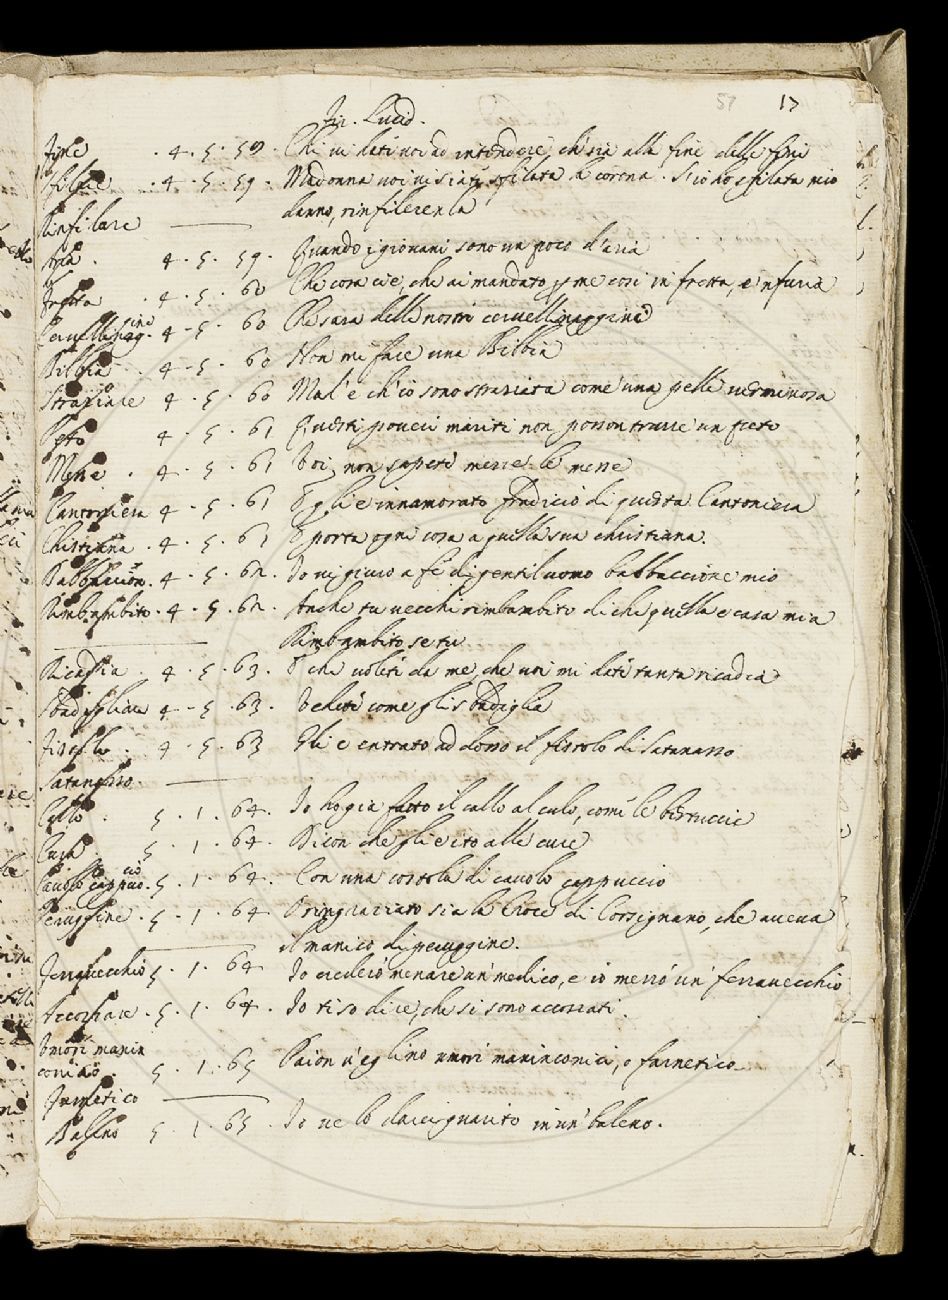 57 17
Fir. Lucid.
Fine . 4 . 5 . 59 . Chi vi dati voi ad intendere, ch' sia alla fine delle fini
Sfilare . 4 . 5 . 59 . Madonna voi vi siate sfilata la corona . S'io ho sfilata mio
Rinfilare —— danno, rinfilerenla
Aria . 4 . 5 . 59 . Quando i giovani sono un poco d'aria
Fretta . 4 . 5 . 60 Che cosa ci è, che ai mandato p me così in fretta, e 'n furia
Cervellinag.gine 4 . 5 . 60 Ch' sara delle nostri cervellinaggini
Bibbia . 4 . 5 . 60 Non mi fate una Bibbia
Straziare 4 . 5 . 60 Mal' è ch' io sono straziata come una pelle verminosa
4 . 5 . 61 Questi poveri mariti non posson trarre un peto
Messe . 4 . 5 . 61 Voi non sapete messe le messe
Cantoniera 4 . 5 . 61 Egli è innamorato fradicio di questa Cantoniera
Christiana . 4 . 5 . 61 E porta ogni cosa a quella sua christiana.
Babbaccion . 4 . 5 . 62 . Io vi giuro a fe di gentiluomo babbaccione mio
Rimbambito . 4 . 5 . 62 . Anche tu vecchi rimbambito di che quella e casa mia
—— Rimbambito se tu
Ricadia . 4 . 5 . 63 . E che voleti da me, che voi mi dati tanta ricadia
Sbadigliare 4 . 5 . 63 . Vedeti come gli sbadiglia
Fistolo . 4 . 5 . 63 Gli è entrato ad dosso il fistolo di Satanasso
Satanasso. ——
Callo . 5 . 1 . 64 . Io ho gia fatto il callo al culo, come le bertuccie
Cura 5 . 1 . 64 . Dicon che gli è ito alle cure
Cavolo cappuccio . 5 . 1 . 64 . Con una costola di cavolo cappuccio
Peruggine . 5 . 1 . 64 . Ringraziato sia la Croce di Corsignano, che aveva
—— il manico di peruggine.
Ferravecchio 5 . 1 . 64 . Io credeio menare un' medico, e io menò un' ferravecchio
Accorciare . 5 . 1 . 64 . Io ti so dire, che si sono accorciati .
Umori manin
conico . 5 . 1 . 65 Paion v'eglino umori maninconici, o farnetico
Farnetico ——
Baleno 5 . 1 . 65 . Io ve lo daccignauto in un' baleno .